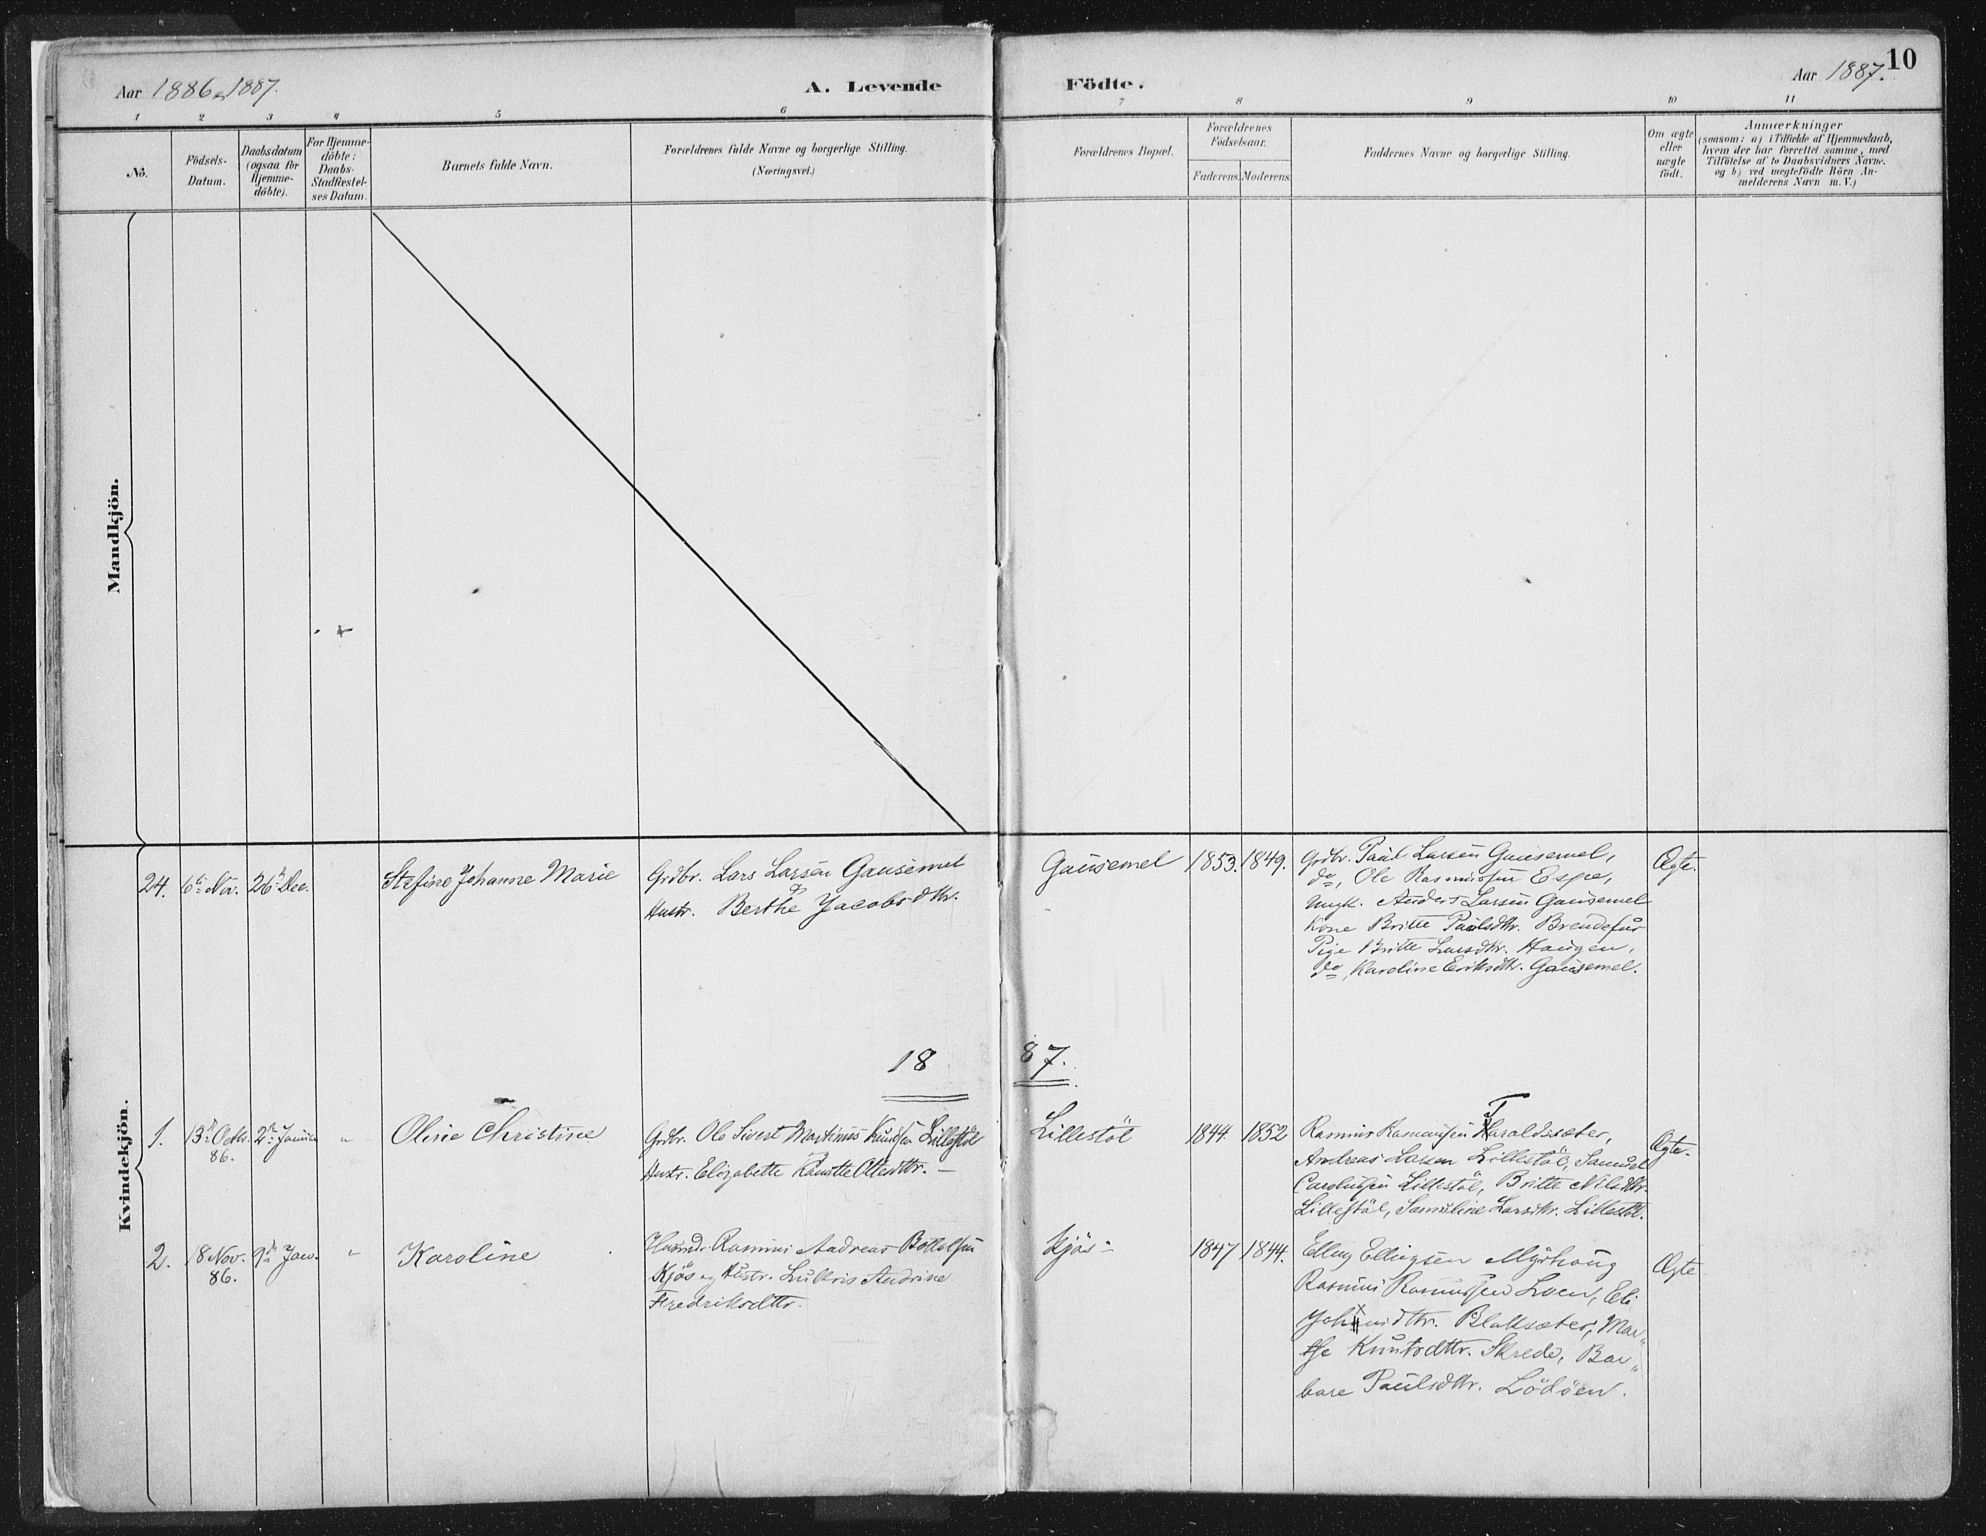 Aar 1886 1887.
A. Levende
Födte.
Aar 1887.
10
1
2
3
4
5
6
7
8
9
10
11
No.
Födsels-
Datum.
Daabsdatum
(ogsaa for
Hjemme-
döbte).
For Hjemme-
döbte:
Daabs-
Stadfæstel-
ses Datum.
Barnets fulde Navn.
Forældrenes fulde Navne og borgerlige Stilling.
(Næringsvei.)
Forældrenes Bopæl.
Forældrenes
Födselsaar.
Faderens.
Moderens.
Faddernes Navne og borgerlige Stilling.
Om ægte
eller
uægte
födt.
Anmærkninger
(saasom: a) i Tilfælde af Hjemmedaab,
hvem der har forrettet samme, med
Tilföielse af to Daabsvidners Navne,
og b) ved uægtefödte Börn An-
melderens Navn m. V.)
Mandkjön.
Kvindekjön.
24.
6te Nov.
26de Dec.
Stefine Johanne Marie
Grdbr. Lars Larsen Gausemel
Hustr. Berthe Jacobsdttr.
Gausemel
1853.
1849.
Grdbr. Paul Larsen Gausemel,
do, Ole Rasmussen Espe,
Ungk. Anders Larsen Gausemel
Kone Britte Paulsdttr. Brendefur
Pige Britte Larsdttr. Haugen,
do, Karoline Eriksdttr. Gausemel.
Ægte.
1887.
1.
13de Octbr.
86.
2den Januar
"
Oline Christine
Grdbr. Ole Sivert Martinus Knudsen Lillestöl
Hustr. Elizabette Ottesdttr. —
Lillestöl
1844.
1852
Rasmus Rasmussen Taraldsæter,
Andreas Larsen Lillestöl, Samuel
Carolusen Lillestöl, Britte Nilsdttr.
Lillestöl, Samuline Larsdttr. Lillestöl.
Ægte.
2.
18 Nov.
86.
9de Jan.
"
Karoline
Husmd. Rasmus Andreas Bottolfsen
Kjös og Hustr. Andrine
Fredriksdttr.
Kjös -
1847
1844.
Elling Ellingsen Myrhoug
Rasmus Rasmussen Loen, Eli
dttr. Blaksæter, Mar„
the Knutsdttr. Skrede, Bar„
bare Paulsdttr. Lödöen.
Ægte